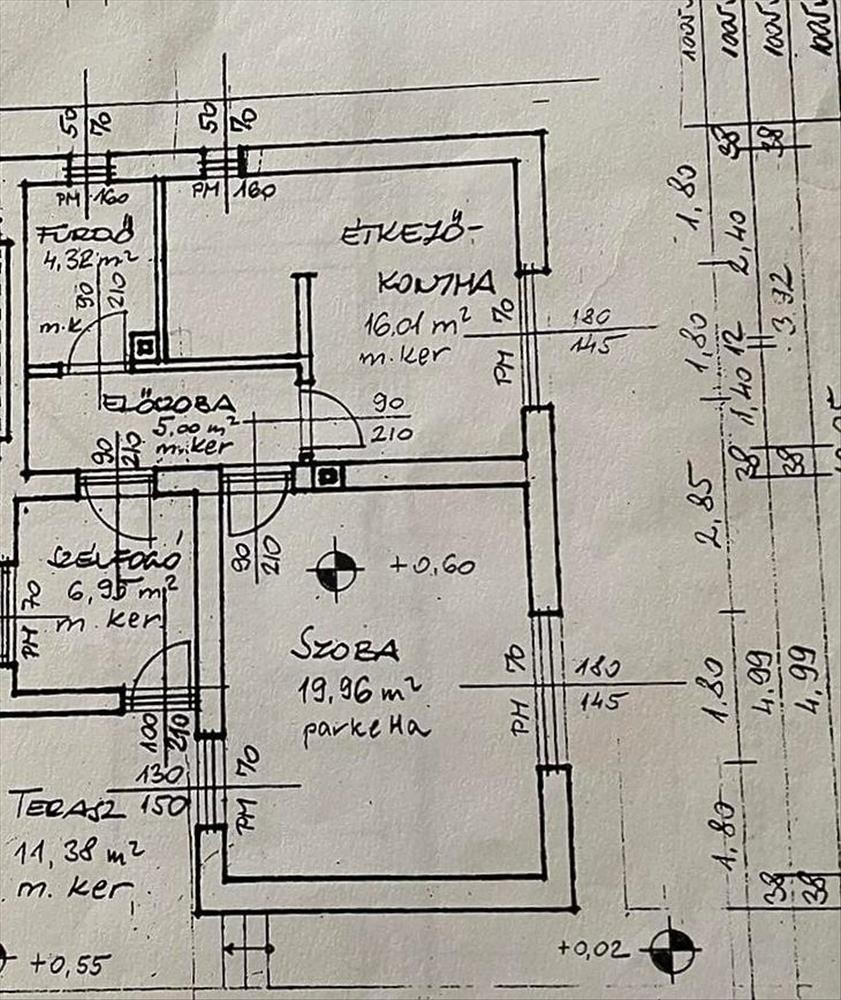 1005
1005
1005
1005
50
70
50
70
PM 160
PM 160
38
38
FÜRDŐ
4,32 m²
90
210
m.k.
ÉTKEZŐ-
KONYHA
16,01 m²
m.ker
PM 70
180
145
1,80
2,40
3.92
1,80
12
1,40
ELŐSZOBA
5,00 m²
m.ker
90
210
90
210
90
210
38
38
2,85
SZÉLFOGÓ
6,95 m²
m ker
PM 70
+0,60
SZOBA
19,96 m²
parketta
PM 70
180
145
1,80
4,99
4,99
100
210
130
150
PM 70
TERASZ
11,38 m²
m. ker
1,80
38
38
+0,55
+0,02